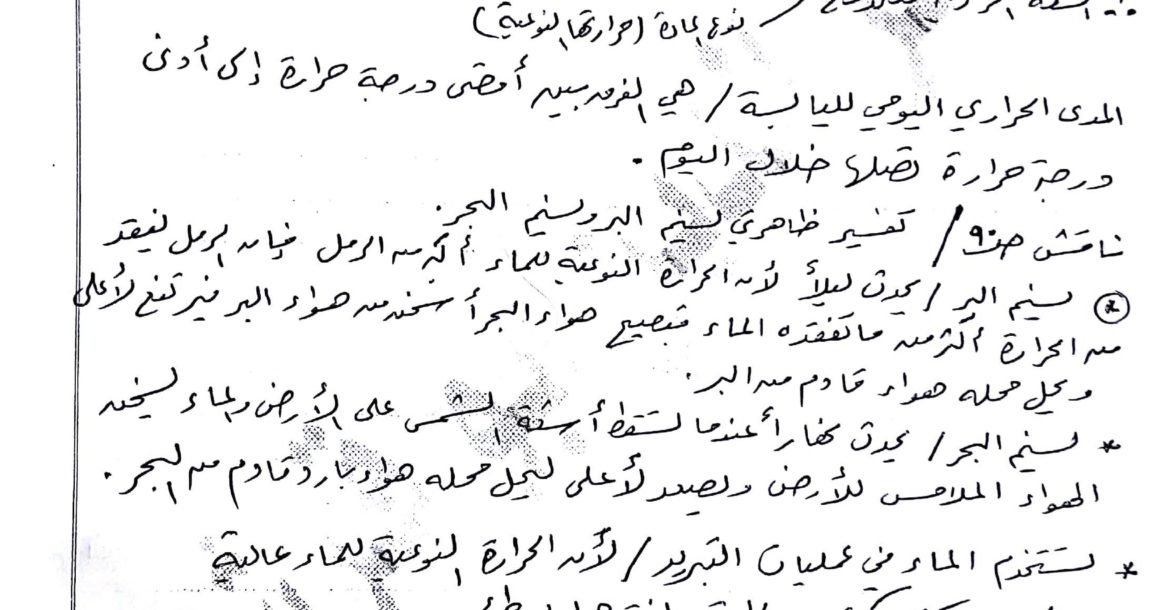 نوع المادة (حرارتها النوعية)
المدى الحراري اليومي لليابسة / هي الفرق بين أقصى درجة حرارة إلى أدنى
درجة حرارة تصلها خلال اليوم .
ناقش ص٩٠ / تفسير ظاهرتي نسيم البر ونسيم البحر.
* نسيم البر / يحدث ليلاً لأن الحرارة النوعية للماء أكبر من الرمل فإن الرمل يفقد
من الحرارة أكثر من ما تفقده الماء فيصبح هواء البحر أسخن من هواء البر فيرتفع لأعلى
ويحل محله هواء قادم من البر.
* نسيم البحر / يحدث نهاراً عندما تسقط أشعة الشمس على الأرض والماء يسخن
الهواء الملامس للأرض ويصعد لأعلى ليحل محله هواء بارد قادم من البحر .
* يستخدم الماء في عمليات التبريد / لأن الحرارة النوعية للماء عالية